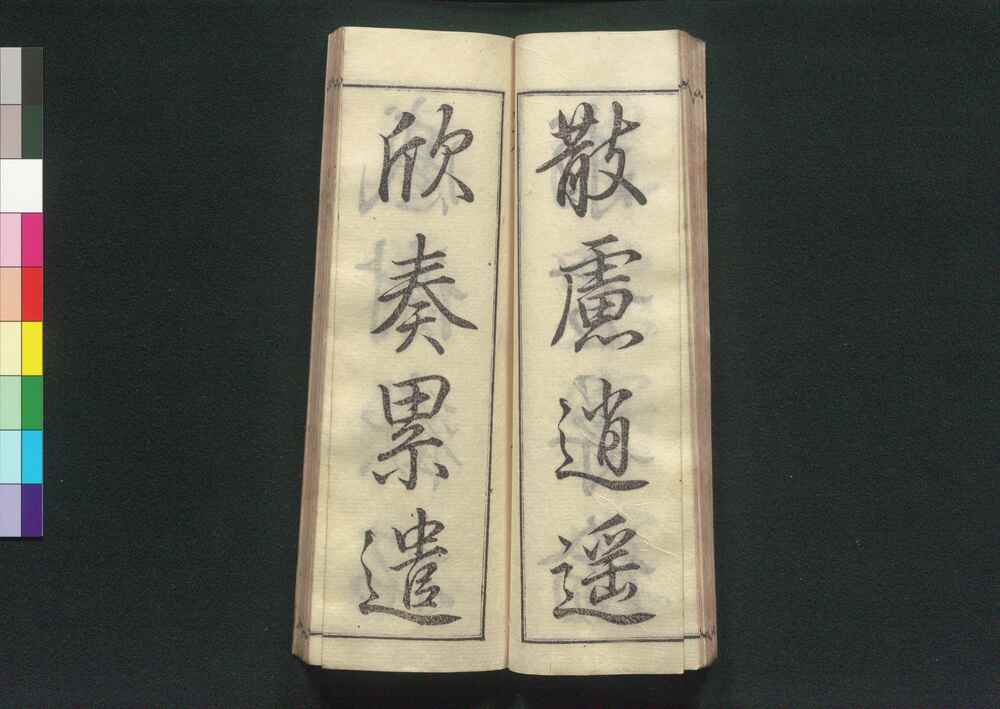 散慮逍遥
欣奏累遣